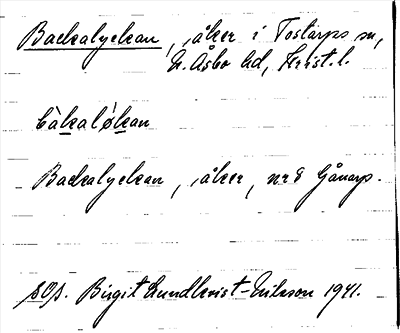 Backalyckan, åker i Tostarps sn,
N. Åsbo hd, Krist. l.
bàkalǿkan
Backalyckan, åker, nr 8 Gånarp.
Birgit Lundkvist-Eriksson 1941.